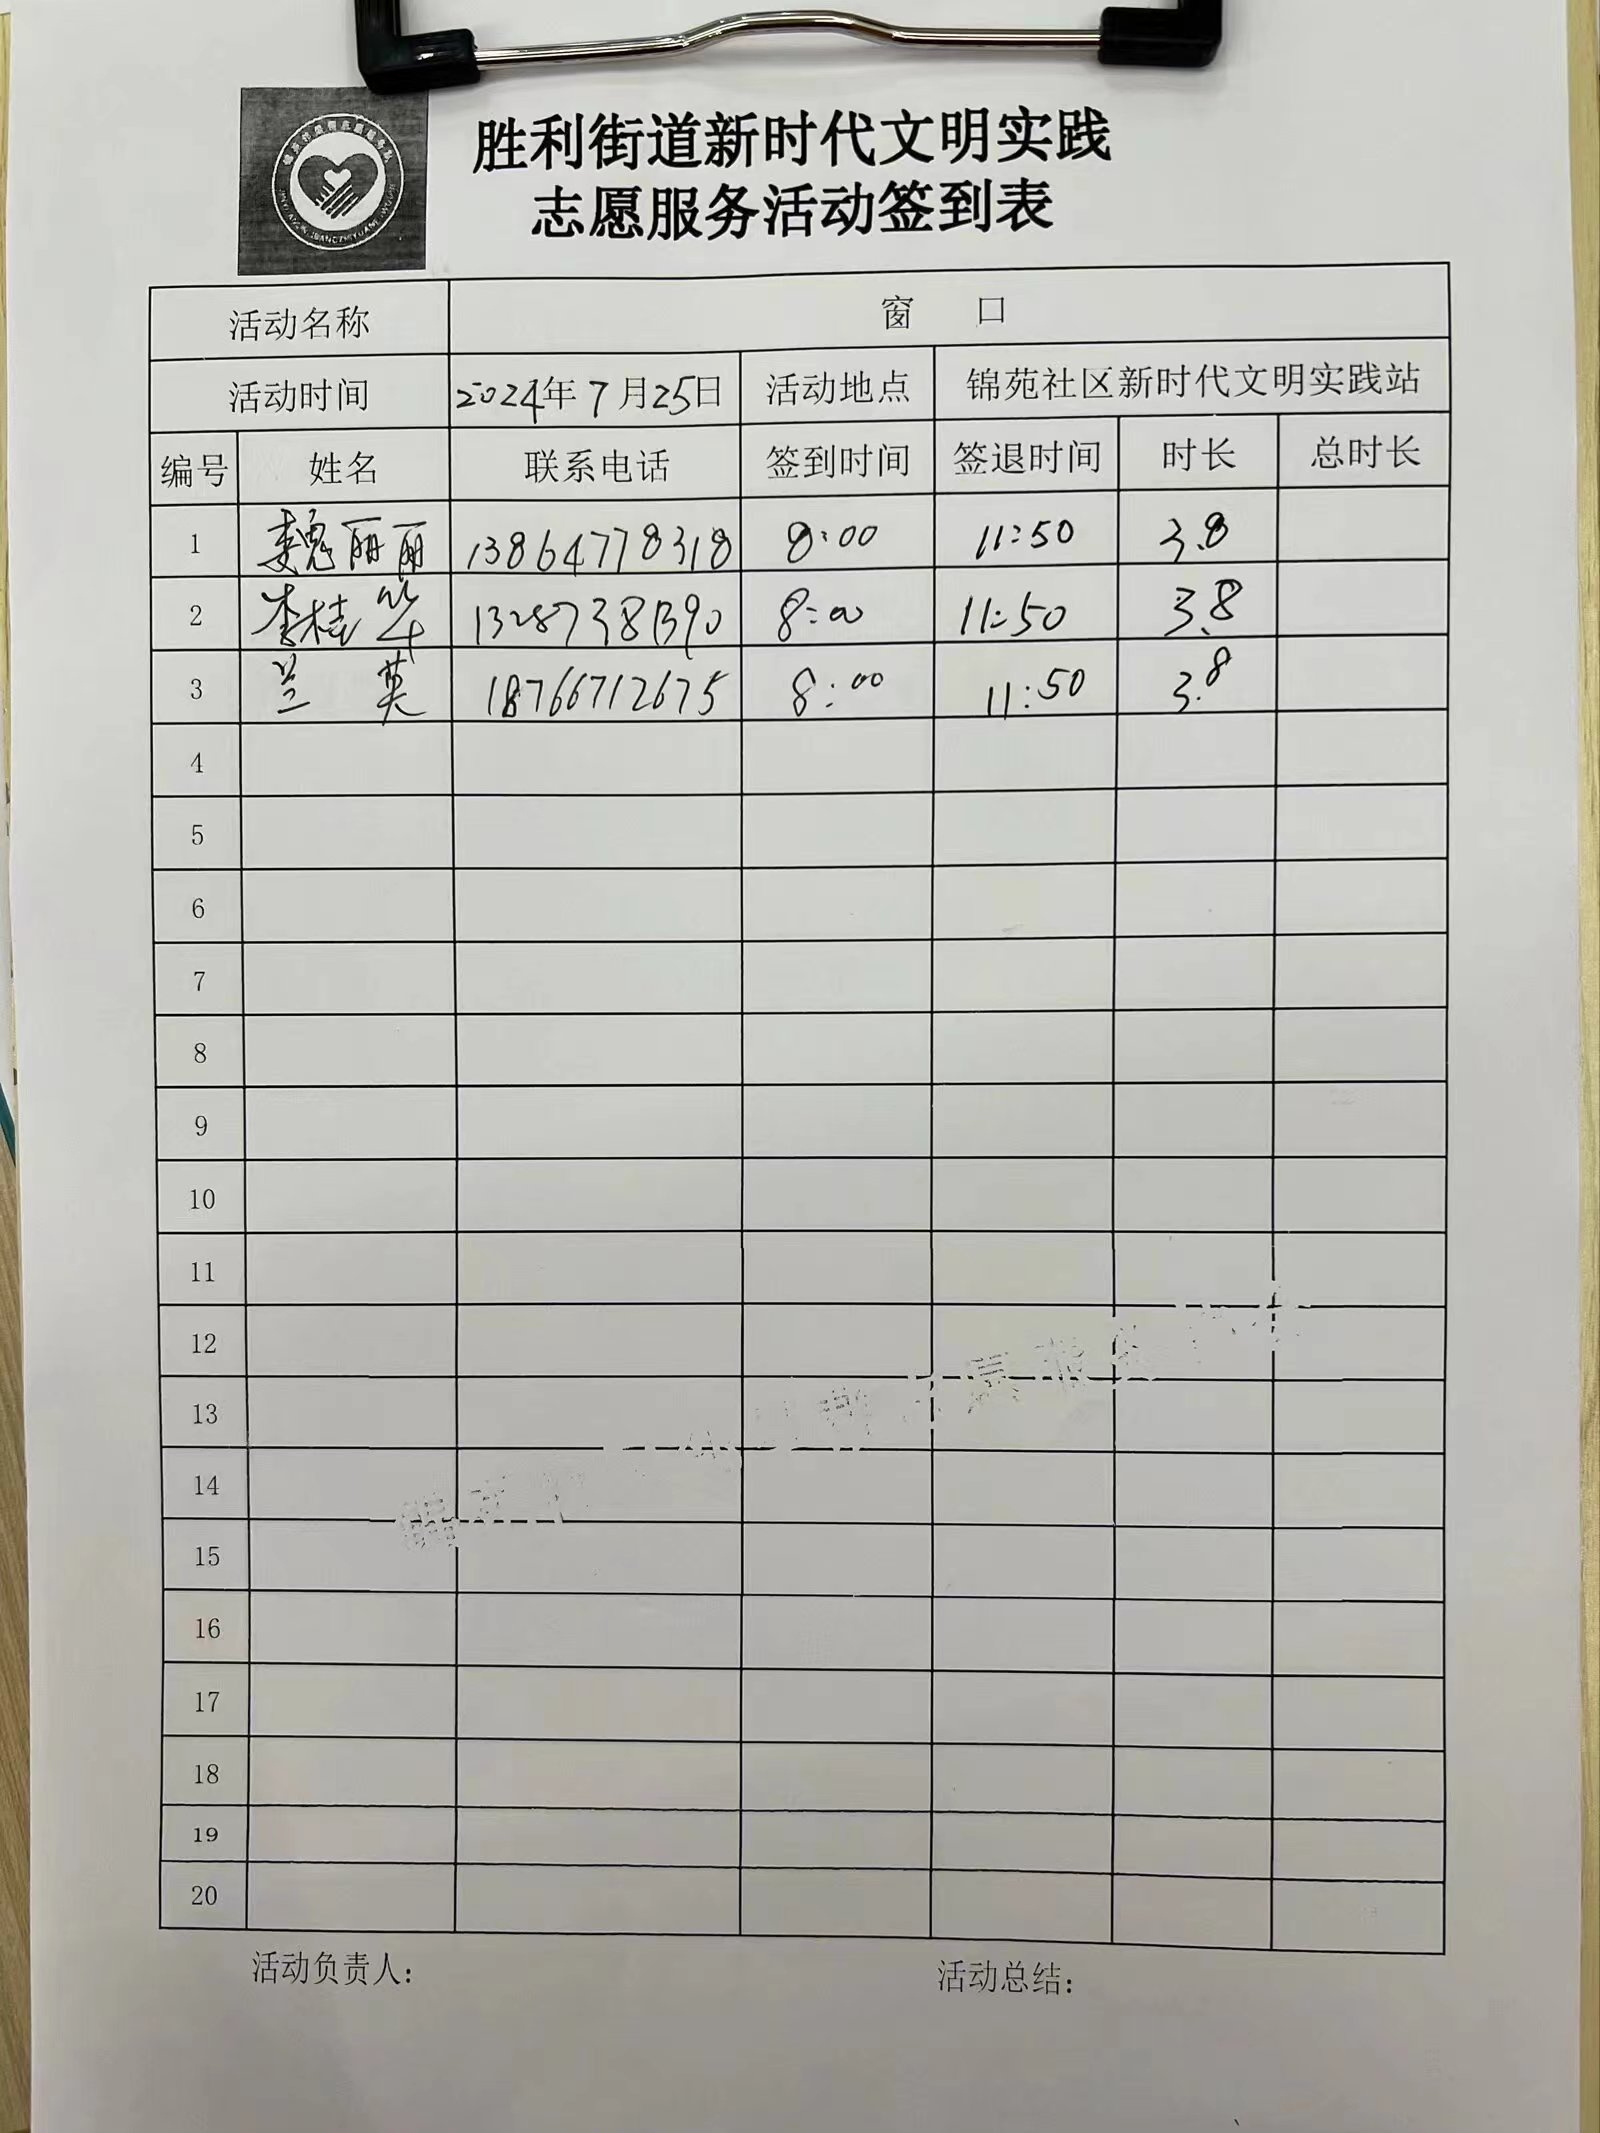 胜利街道新时代文明实践
志愿服务活动签到表
活动名称 窗 口
活动时间 2024年7月25日 活动地点 锦苑社区新时代文明实践站
编号 姓名 联系电话 签到时间 签退时间 时长 总时长
1 魏丽丽 13864778318 8:00 11:50 3.8
2 李桂华 13287381390 8:00 11:50 3.8
3 兰英 18766712675 8:00 11:50 3.8
4
5
6
7
8
9
10
11
12
13
14
15
16
17
18
19
20
活动负责人: 活动总结: